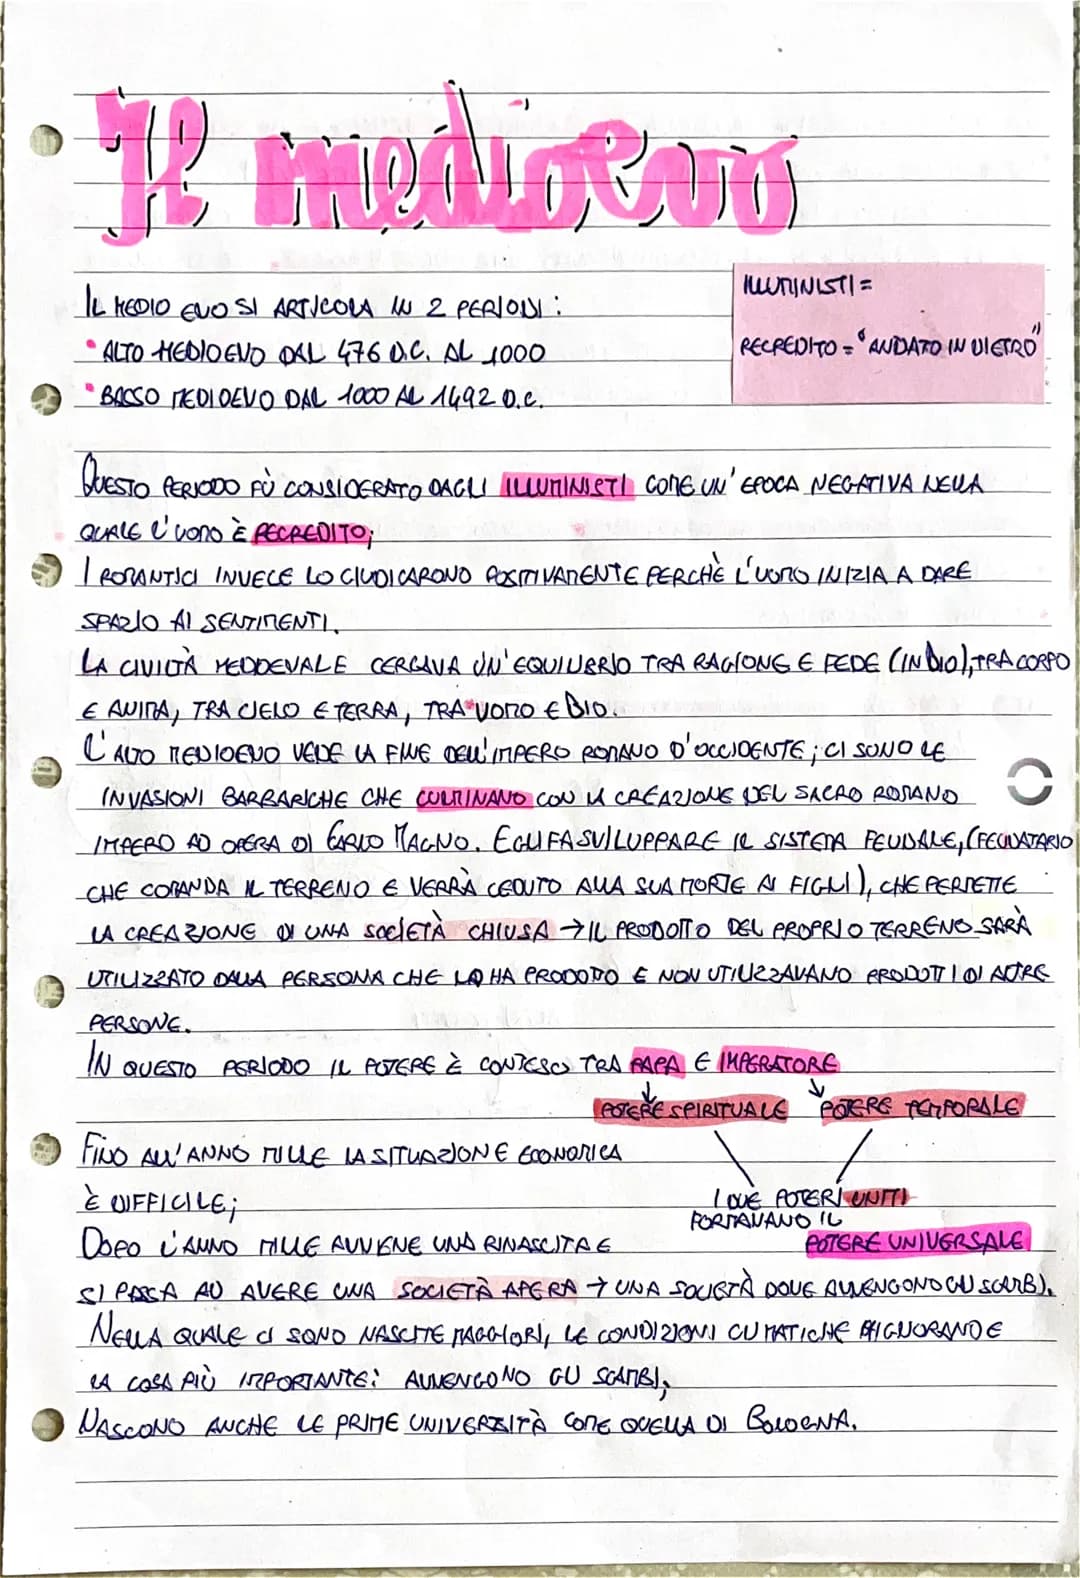 Il medioevo
IL MEDIO EVO SI ARTICOLA IN 2 PERIODI:
• ALTO MEDIOEVO DAL 476 D.C. AL 1000
• BASSO MEDIOEVO DAL 1000 AL 1492 D.C.
ILLUMINISTI =
RECREDITO = "ANDATO IN DIETRO"
QUESTO PERIODO FÙ CONSIDERATO DAGLI ILLUMINISTI COME UN'EPOCA NEGATIVA NELLA
QUALE L'UOMO È RECREDITO;
I ROMANTICI INVECE LO GIUDICARONO POSITIVAMENTE PERCHÈ L'UOMO INIZIA A DARE
SPAZIO AI SENTIMENTI.
LA CIVILTÀ MEDOEVALE CERCAVA UN'EQUILIBRIO TRA RAGIONE E FEDE (IN DIO), TRA CORPO
E ANIMA, TRA CIELO E TERRA, TRA UOMO E DIO.
L'ALTO MEDIOEVO VEDE LA FINE DELL'IMPERO ROMANO D'OCCIDENTE; CI SONO LE
INVASIONI BARBARICHE CHE CULMINANO CON LA CREAZIONE DEL SACRO ROMANO
IMPERO AD OPERA DI CARLO MAGNO. EGLI FA SVILUPPARE IL SISTEMA FEUDALE, (FEUDATARIO
CHE COMANDA IL TERRENO E VERRÀ CEDUTO ALLA SUA MORTE AI FIGLI), CHE PERMETTE
LA CREAZIONE DI UNA SOCIETÀ CHIUSA → IL PRODOTTO DEL PROPRIO TERRENO SARÀ
UTILIZZATO DALLA PERSONA CHE LO HA PRODOTTO E NON UTILIZZAVANO PRODOTTI DI ALTRE
PERSONE.
IN QUESTO PERIODO IL POTERE È CONTESO TRA PAPA E IMPERATORE
POTERE SPIRITUALE POTERE TEMPORALE
FINO ALL'ANNO MILLE LA SITUAZIONE ECONOMICA
È DIFFICILE;
I DUE POTERI UNITI
PORTAVANO IL
POTERE UNIVERSALE
DOPO L'ANNO MILLE AVVIENE UNA RINASCITA E
SI PASSA AD AVERE UNA SOCIETÀ APERA → UNA SOCIETÀ DOVE AVVENGONO GLI SCAMBI.
NELLA QUALE CI SONO NASCITE MAGGIORI, LE CONDIZIONI CLIMATICHE MIGLIORANO E
LA COSA PIÙ IMPORTANTE: AVVENGONO GLI SCAMBI;
NASCONO ANCHE LE PRIME UNIVERSITÀ COME QUELLA DI BOLOGNA.